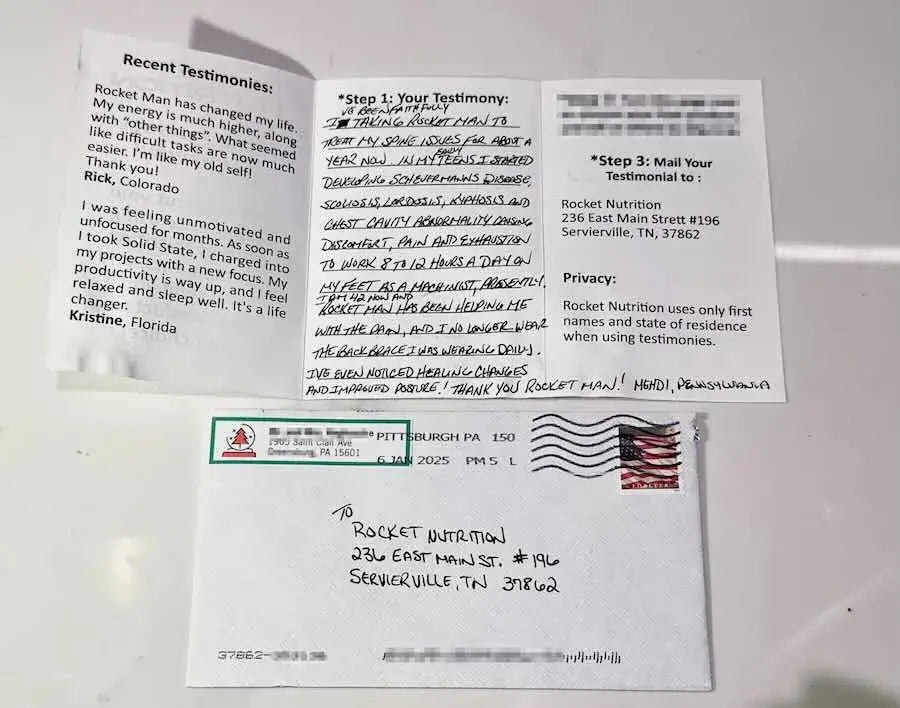 Recent Testimonies:
Rocket Man has changed my life.
My energy is much higher, along
with "other things". What seemed
like difficult tasks are now much
easier. I'm like my old self!
Thank you!
Rick, Colorado
I was feeling unmotivated and
unfocused for months. As soon as
I took Solid State, I charged into
my projects with a new focus. My
productivity is way up, and I feel
relaxed and sleep well. It's a life
changer.
Kristine, Florida
*Step 1: Your Testimony:
BEEN FAITHFULLY
I TAKING ROCKET MAN TO
TREAT MY SPINE ISSUES FOR ABOUT A
EARLY
YEAR NOW. IN MY TEENS I STARTED
DEVELOPING SCHEUERMANNS DISEASE,
SCOLIOSIS, LORDOSIS, KYPHOSIS AND
CHEST CAVITY ABNORMALITY CAUSING
DISCOMFORT, PAIN AND EXHAUSTION
TO WORK 8 TO 12 HOURS A DAY ON
MY FEET AS A MACHINIST, PRESENTLY.
I AM 42 NOW AND
ROCKET MAN HAS BEEN HELPING ME
WITH THE PAIN, AND I NO LONGER WEAR
THE BACK BRACE I WAS WEARING DAILY.
I'VE EVEN NOTICED HEALING CHANGES
AND IMPROVED POSTURE! THANK YOU ROCKET MAN! MEHDI, PENNSYLVANIA
*Step 3: Mail Your
Testimonial to :
Rocket Nutrition
236 East Main Strett #196
Servierville, TN, 37862
Privacy:
Rocket Nutrition uses only first
names and state of residence
when using testimonies.
1905 Saint Clair Ave
PA 15601
PITTSBURGH PA 150
6 JAN 2025 PM 5 L
FOREVER
TO
ROCKET NUTRITION
236 EAST MAIN ST. #196
SERVIERVILLE, TN 37862
37862